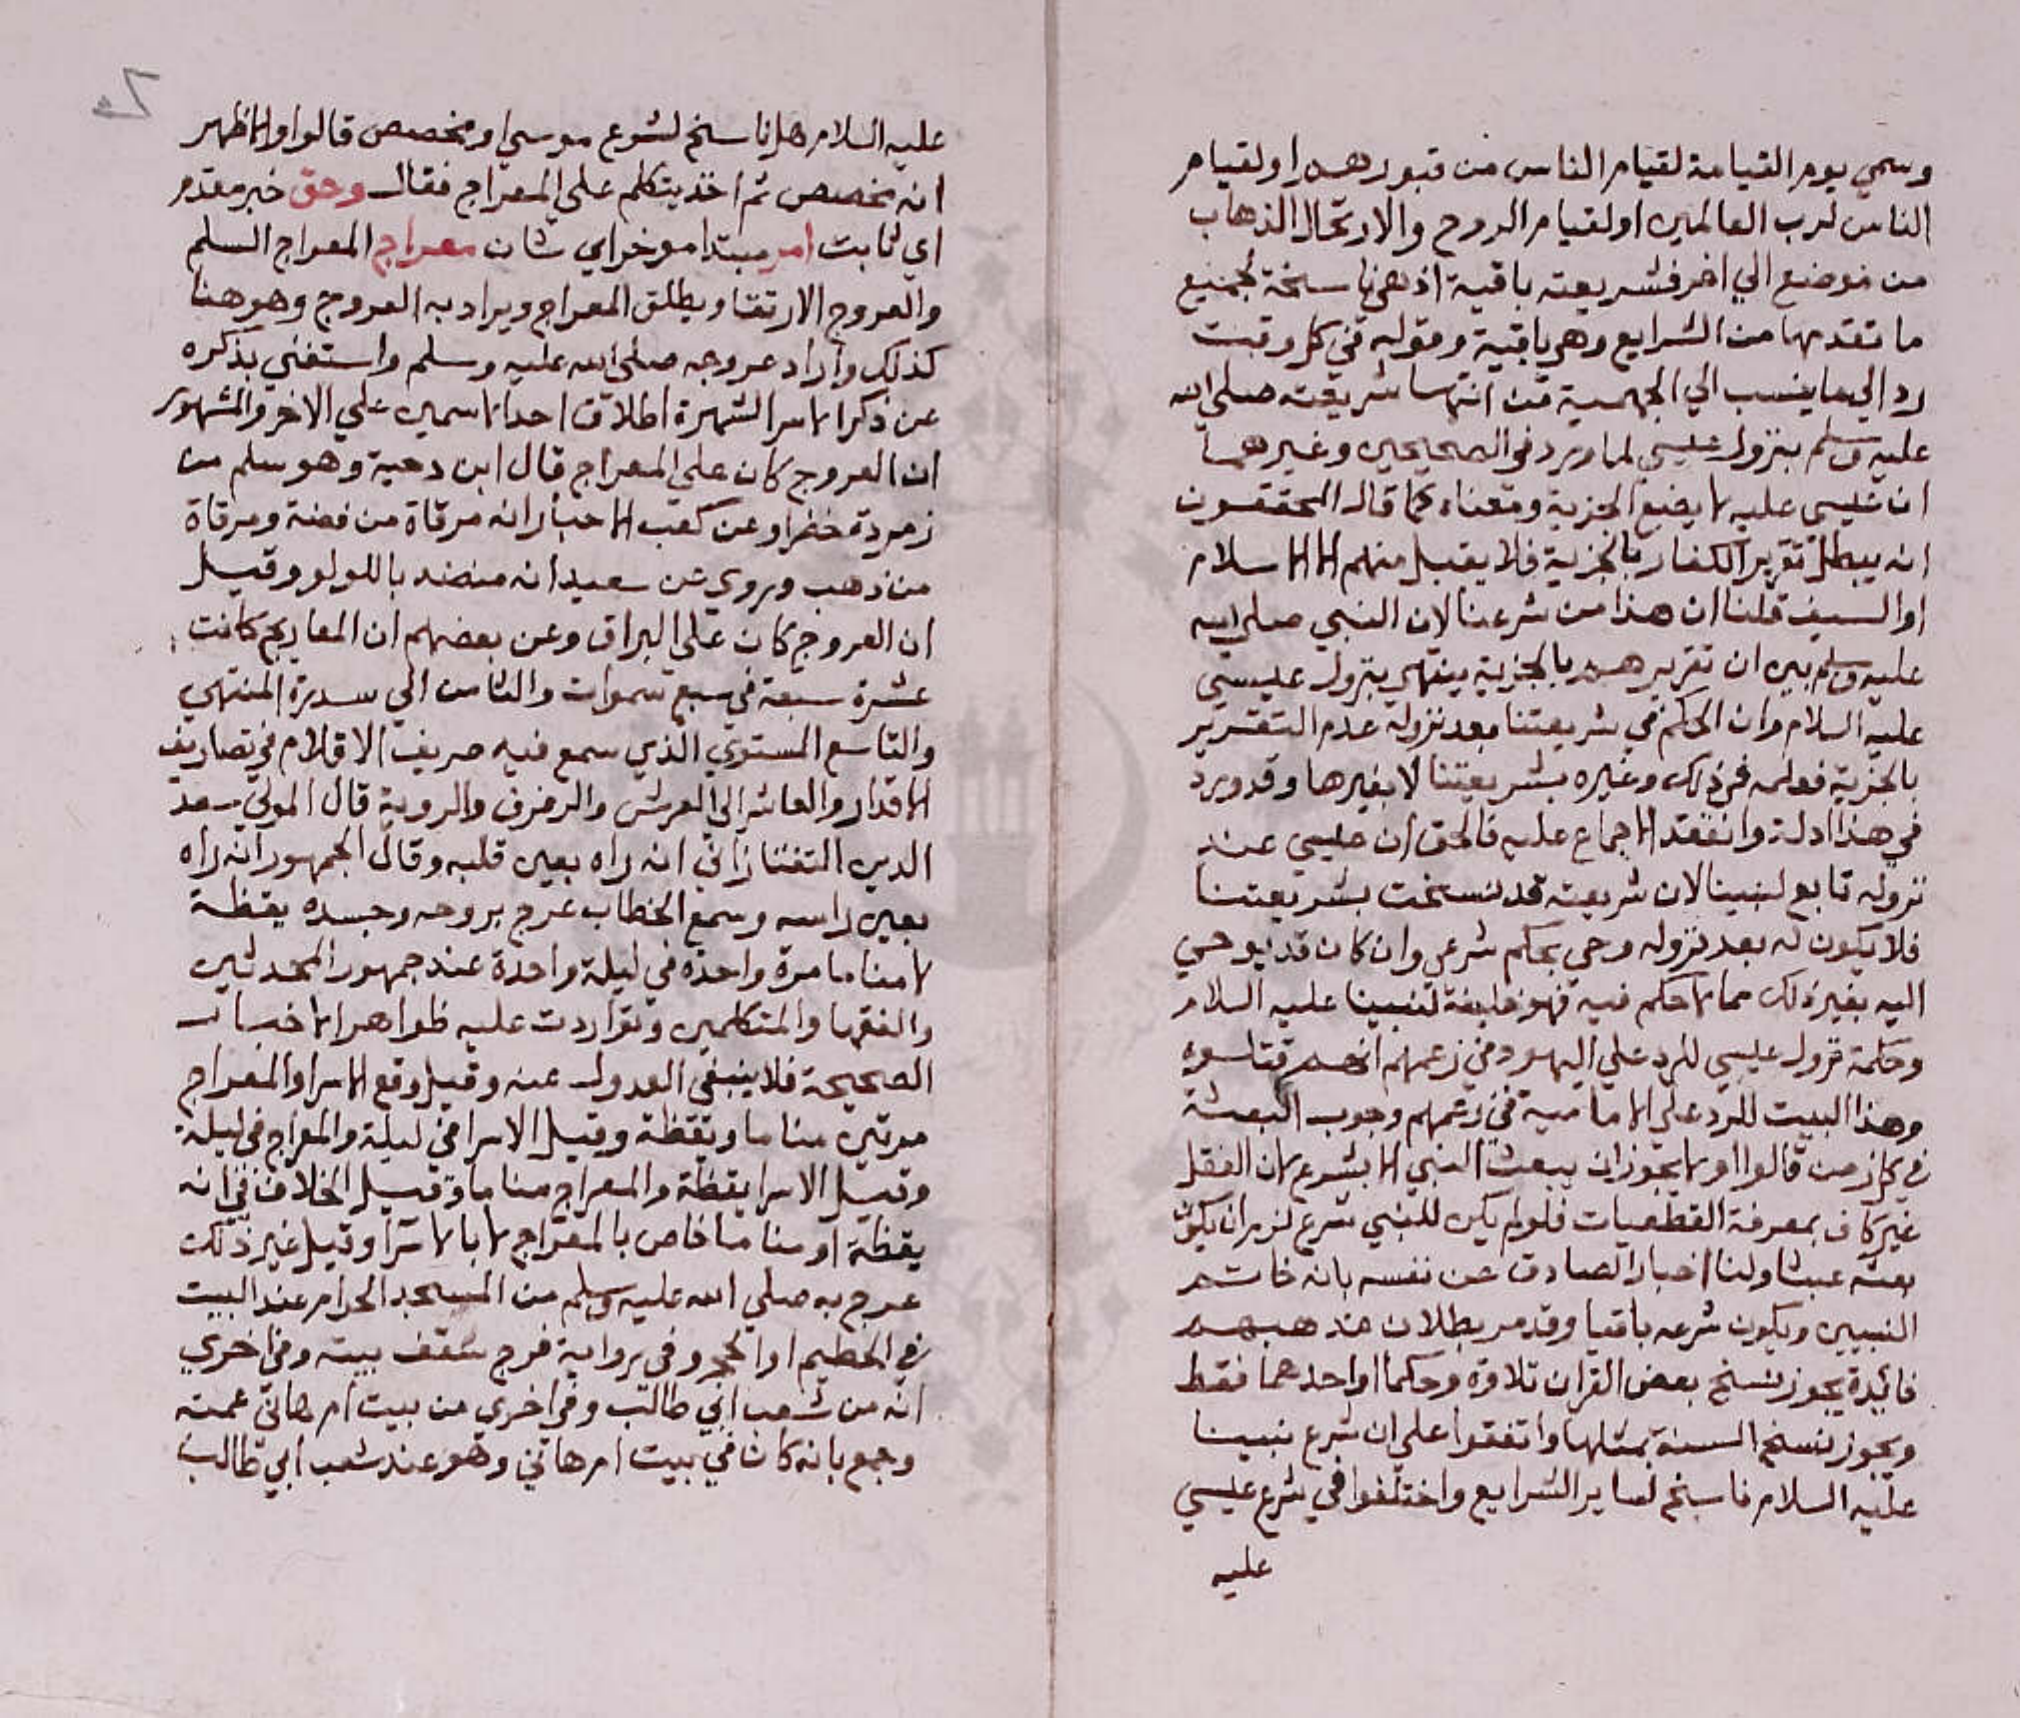 وسمي يوم القيامة لقيام الناس من قبورهم او لقيام
الناس لرب العالمين او لقيام الروح والارتحال الذهاب
من موضع الي اخر فشريعته باقية اذ هي ناسخة لجميع
ما تقدمها من الشرايع وهي باقية وقوله في كل وقت
رد الي ما ينسب الي الجهمية من انتها شريعته صلى الله
عليه وسلم بنزول عيسي لما ورد في الصحيحين وغيرهما
ان عيسي عليه لا يضع الجزية ومعناه كما قال المحققون
انه يبطل تقرير الكفار بالجزية فلا يقبل منهم الا الاسلام
او السيف قلنا ان هذا من شرعنا لان النبي صلى الله
عليه وسلم بين ان تقريرهم بالجزية ينتهي بنزول عيسي
عليه السلام وان الحكم في شريعتنا بعد نزوله عدم التقرير
بالجزية فعلمه في ذلك وغيره بشريعتنا لا بغيرها وقد ورد
في هذا ادلة وانعقد الاجماع عليه فالحق ان عيسي عند
نزوله تابع لنبينا لان شريعته قد نسخت بشريعتنا
فلا يكون له بعد نزوله وحي بحكم شرعي وان كان قد يوحي
اليه بغير ذلك مما لا حكم فيه فهو خليفة لنبينا عليه السلام
وحكمة نزول عيسي للرد علي اليهود في زعمهم انهم قتلوه
وهذا البيت للرد علي الامامية في زعمهم وجوب البعثة
في كل زمن قالوا او لا يجوز ان يبعث النبي الا بشرع لان العقل
غير كاف بمعرفة القطعيات فلو لم يكن للنبي شرع لزم ان يكون
بعثه عبثا ولنا اخبار الصادق عن نفسه بانه خاتم
النبيين ويكون شرعه باقيا وقد مر بطلان مذهبهم
فايدة يجوز نسخ بعض القران تلاوة وحكما او احدهما فقط
ويجوز نسخ السنة بمثلها واتفقوا علي ان شرع نبينا
عليه السلام ناسخ لساير الشرايع واختلفوا في شرع عيسي
عليه
عليه السلام هل ناسخ لشرع موسي او مخصص قالوا والاظهر
انه مخصص ثم اخذ يتكلم علي المعراج فقال وحق خبر مقدم
اي ثابت امر مبتدا موخر اي شان معراج المعراج السلم
والعروج الارتقا ويطلق المعراج ويراد به العروج وهو هنا
كذلك واراد عروجه صلى الله عليه وسلم واستغني بذكره
عن ذكر الاسرا لشهرة اطلاق احد الاسمين علي الاخر والمشهور
ان العروج كان علي المعراج قال ابن دحية وهو سلم من
زمردة خضرا وعن كعب الاحبار انه مرقاة من فضة ومرقاة
من ذهب وروي عن سعيد انه منضد باللولو وقيل
ان العروج كان علي البراق وعن بعضهم ان المعاريج كانت
عشرة سبعة في سبع سموات والثامن الي سدرة المنتهي
والتاسع المستوي الذي سمع فيه صريف الاقلام في تصاريف
الاقدار والعاشر الي العرش والرفرف والروية قال المولي سعد
الدين التفتازاني انه راه بعين قلبه وقال الجمهور انه راه
بعين راسه وسمع الخطاب عرج بروحه وجسده يقظة
لا مناما مرة واحدة في ليلة واحدة عند جمهور المحدثين
والفقها والمتكلمين وتواردت عليه ظواهر الاخبار
الصحيحة فلا ينبغي العدول عنه وقيل وقع الاسرا والمعراج
مرتين مناما ويقظة وقيل الاسرا في ليلة والمعراج في ليلة
وقيل الاسرا يقظة والمعراج مناما وقيل الخلاف في انه
يقظة او مناما خاص بالمعراج لا بالاسرا وقيل غير ذلك
عرج به صلي الله عليه وسلم من المسجد الحرام عند البيت
في الحطيم او الحجر وفي رواية فرج سقف بيته وفي اخري
انه من شعب ابي طالب وفي اخري من بيت ام هاني عمته
وجمع بانه كان في بيت ام هاني وهو عند شعب ابي طالب